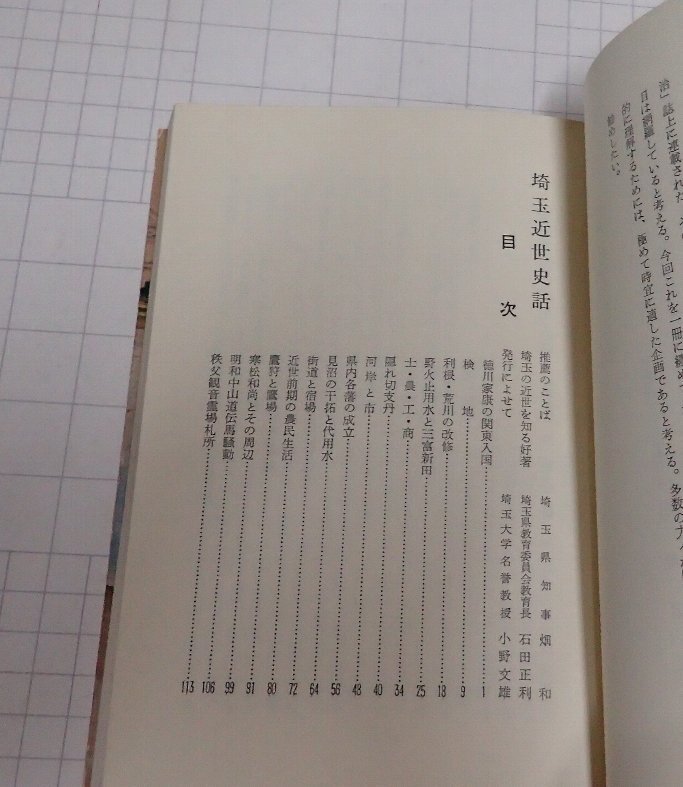 治」誌上に連載された
目は網羅していると考える。今回これを一冊に纏めて
的に理解するためには、極めて時宜に適した企画であると考える。多数の方々
勧めしたい。
埼玉近世史話
目次
推薦のことば 埼玉県知事 畑和
埼玉の近世を知る好著 埼玉県教育委員会教育長 石田正利
発行によせて 埼玉大学名誉教授 小野文雄
徳川家康の関東入国 1
検地 9
利根・荒川の改修 18
野火止用水と三富新田 25
士・農・工・商 34
隠れ切支丹 40
河岸と市 48
県内各藩の成立 56
見沼の干拓と代用水 64
街道と宿場 72
近世前期の農民生活 80
鷹狩と鷹場 91
寒松和尚とその周辺 99
明和中山道伝馬騒動 106
秩父観音霊場札所 113